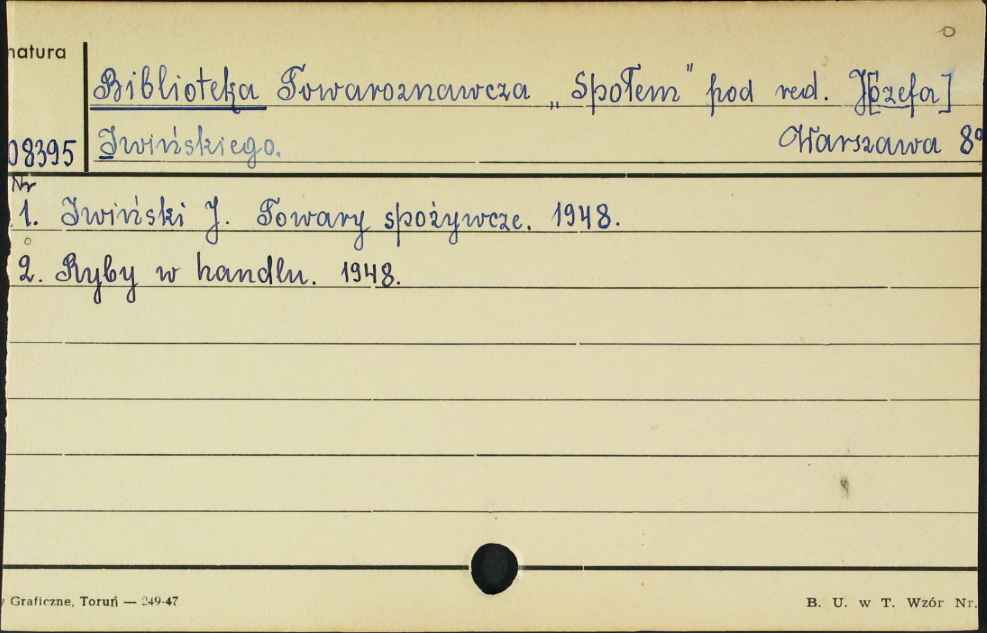 natura
Biblioteka Towaroznawcza „Społem" pod red. J[ózefa]
08395 Iwińskiego. Warszawa 8º
Nr
1. Iwiński J. Towary spożywcze. 1948.
2. Ryby w handlu. 1948.
Graficzne, Toruń — 249-47
B. U. w T. Wzór Nr.